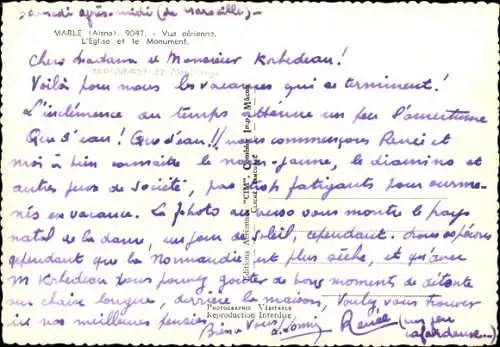 Samedi après-midi (de Marseille) –
MARLE (Aisne). 9047. - Vue aérienne.
L'Eglise et le Monument.
Chers Madame et Monsieur Korbedeau!
Voilà pour nous les vacances qui se terminent!
L'inclémence du temps atténue un peu l'amertume
Que d'eau! Que d'eau!! nous commençons Renée et
moi à bien connaître le nain-jaune, le diamino et
autres jeux de Société, pas trop fatigants pour surme-
nés en vacance. La photo au verso vous montre le pays
natal de la dame, un jour de soleil, cependant. Nous espérons
cependant que la Normandie est plus sèche, et qu'avec
M Korbedeau vous pouvez goûter de bons moments de détente
sur chaise longue, derrière la maison, Voulez vous trouver
ici nos meilleures pensées.
Bien à Vous
Renée (un peu
cafardeuse...)
Editions Aériennes "CIM", Combier Imp. Mâcon
PHOTOGRAPHIE VÉRITABLE
Reproduction Interdite